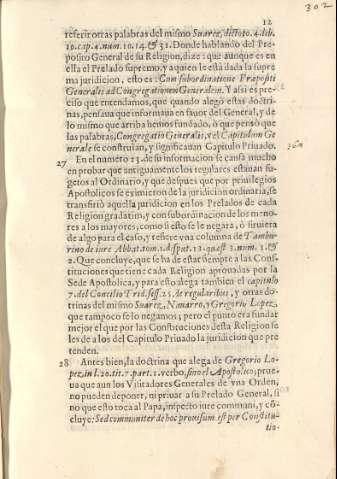 302
12
referir otras palabras del mismo Suarez, dicto to. 4. lib.
10. cap. 4. num. 10. 14. & 31. Donde hablando del Pre-
posito General de su Religion, dize: que aunque es en
ella el Prelado supremo, y a quien le està dada la supre
ma juridicion, esto es: Con subordinatione Præpositi
Generalis ad Congregationem Generalem. Y assi es pre-
ciso que entendamos, que quando alegò estas doctri-
nas, pensaua que informaua en fauor del General, y de
lo mismo que arriba hemos fundado, ò que pensò que
las palabras, Congregatio Generalis, vel Capitulum Ge
nerale se construian, y significauan Capitulo Priuado.
27 En el numero 23. de su informacion se cansa mucho
en probar que antiguamente los regulares estauan su-
getos al Ordinario, y que despues que por priuilegios
Apostolicos se eximieron de la juridicion ordinaria, se
transfiriò aquella juridicion en los Prelados de cada
Religion gradatim, y con subordinacion de los meno-
res a los mayores, como si esto se le negara, ò siruiera
de algo para el caso, y refiere vna columna de Tambu-
rino de iure Abbat. tom. 1. disput. 13. quæst. 1. num. 1. &
2. Que concluye, que se ha de estar siempre a las Cons-
tituciones que tiene cada Religion aprouadas por la
Sede Apostolica, y para esto alega tambien el capitulo
7. del Concilio Trid. sess. 25. de regularibus, y otras doc-
trinas del mismo Suarez, Nauarro, y Gregorio Lopez,
que tampoco se lo negamos; pero el punto era fundar
mejor el que por las Constituciones desta Religion se
les dè a los del Capitulo Priuado la juridicion que pre
tenden.
28 Antes bien, la doctrina que alega de Gregorio Lo-
pez, in l. 20. tit. 7. part. 1. verbo, sino el Apostolico; prue-
ua que aun los Visitadores Generales de vna Orden,
no pueden deponer, ni priuar a su Prelado General, si
no que esto toca al Papa, inspecto iure communi, y cõ-
cluye: Sed communiter de hoc prouisum est per Constitu-
tio-